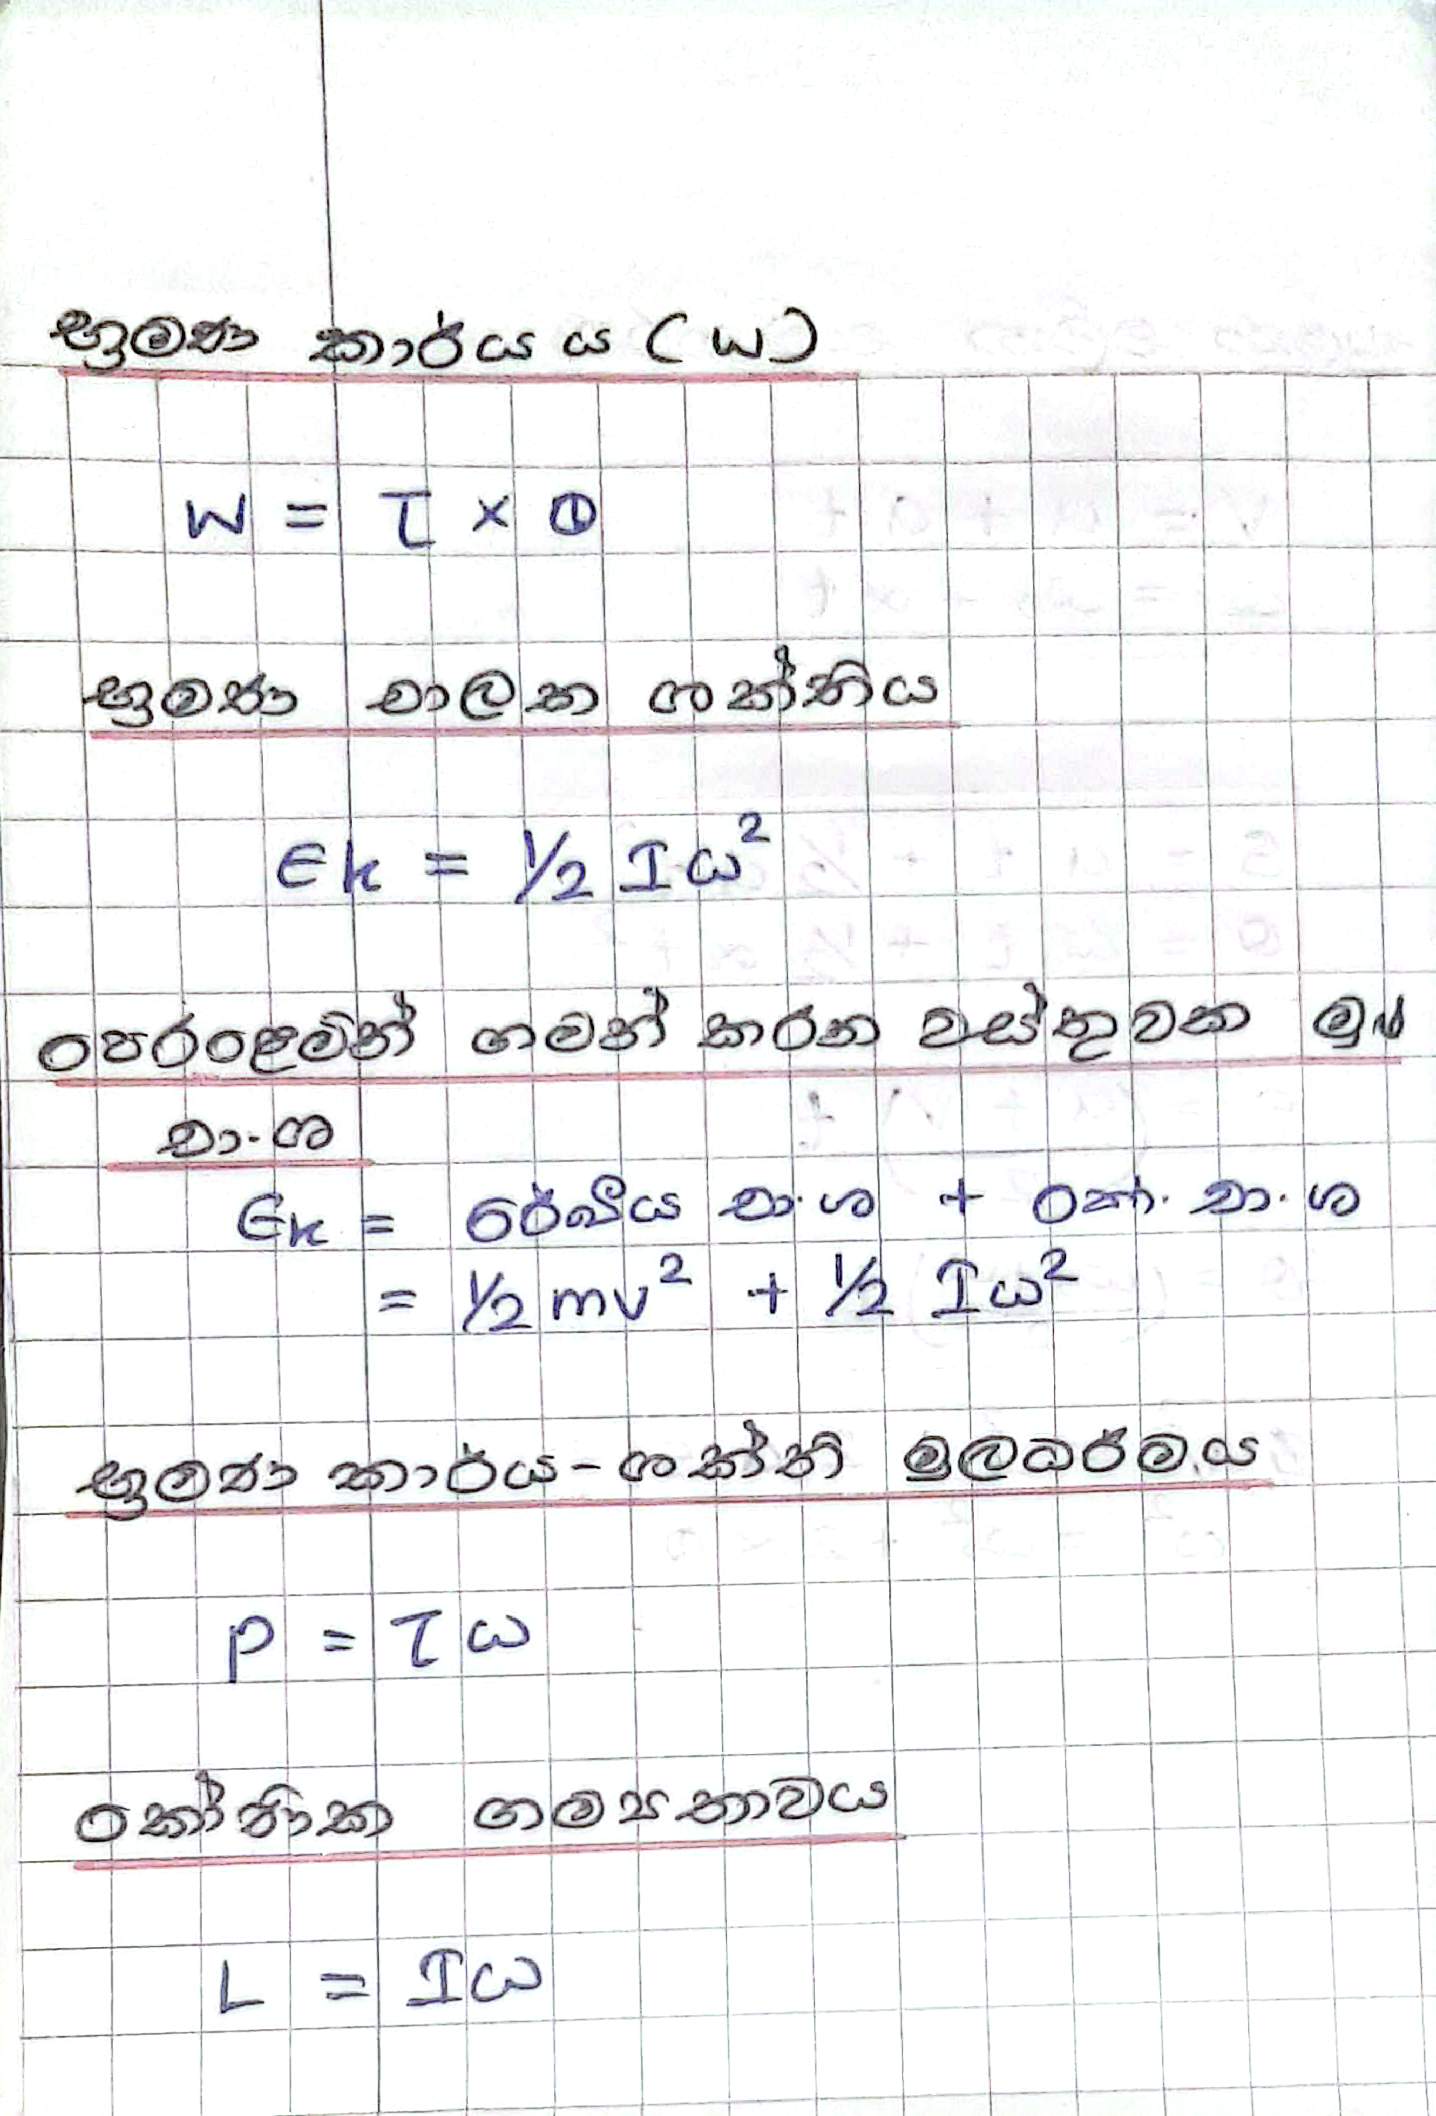 භ්‍රමණ කාර්යය (W)
W = τ × θ
භ්‍රමණ චාලක ශක්තිය
Ek = 1/2 Iω²
පෙරළෙමින් ගමන් කරන වස්තුවක මුළු
චා.ශ
Ek = රේඛීය චා.ශ + කෝ. චා.ශ
= 1/2 mv² + 1/2 Iω²
භ්‍රමණ කාර්ය-ශක්ති මූලධර්මය
P = τω
කෝණික ගම්‍යතාවය
L = Iω